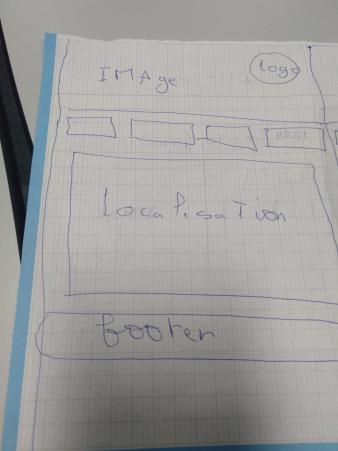 IMAge
logo
localisation
footer